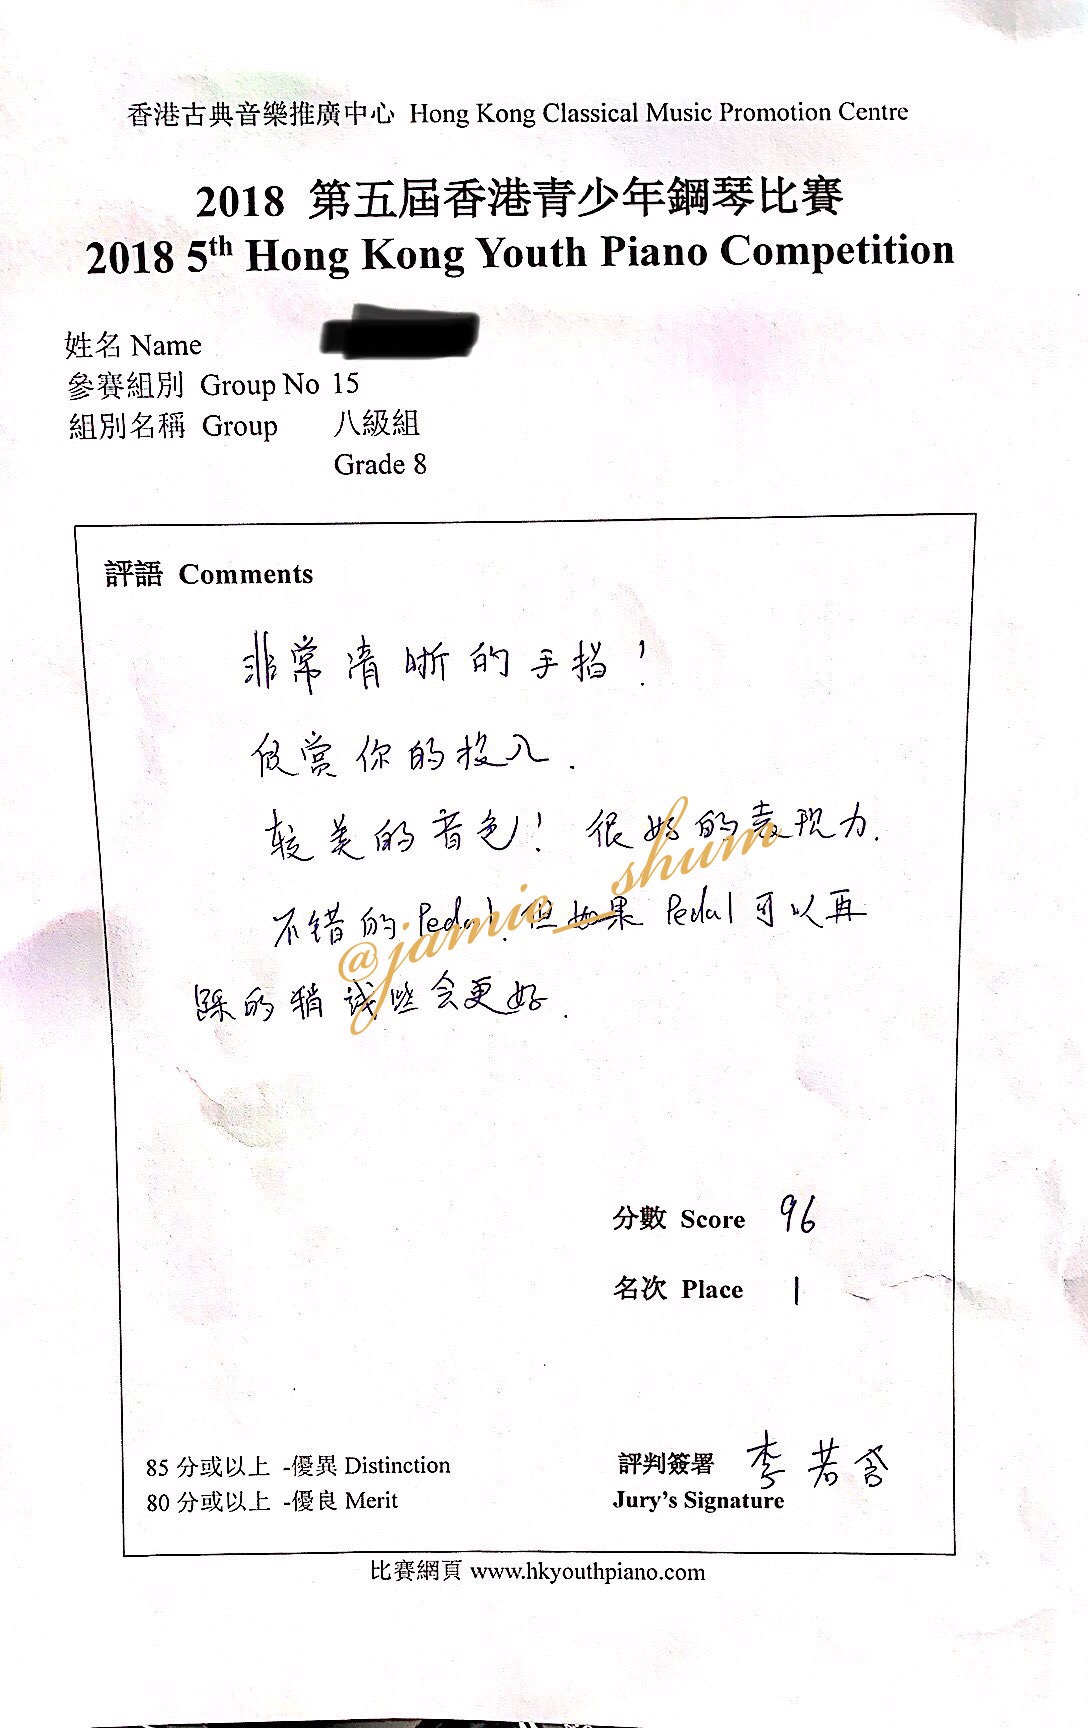 香港古典音樂推廣中心 Hong Kong Classical Music Promotion Centre
2018 第五屆香港青少年鋼琴比賽
2018 5th Hong Kong Youth Piano Competition
姓名 Name
參賽組別 Group No 15
組別名稱 Group 八級組
Grade 8
評語 Comments
非常清晰的手指！
欣赏你的投入.
较美的音色！ 很好的表现力.
不错的 Pedal, 但如果 Pedal 可以再
踩的稍浅些会更好.
@jamie_shum
分數 Score 96
名次 Place 1
85 分或以上 -優異 Distinction
80 分或以上 -優良 Merit
評判簽署 李若含
Jury's Signature
比賽網頁 www.hkyouthpiano.com